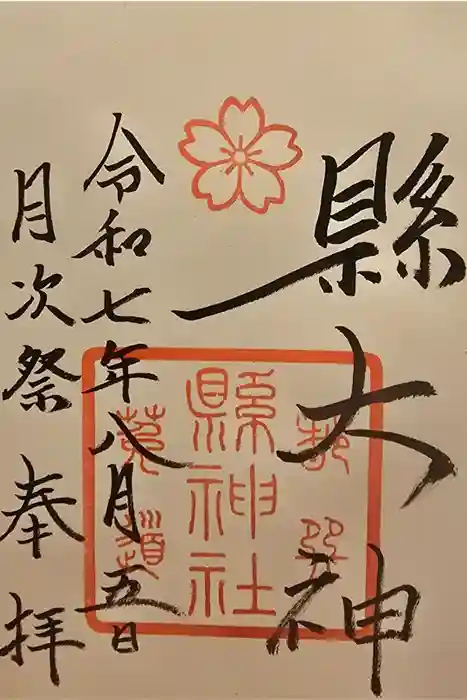 縣大神
縣神社
莵道
令和七年八月五日
月次祭 奉拝